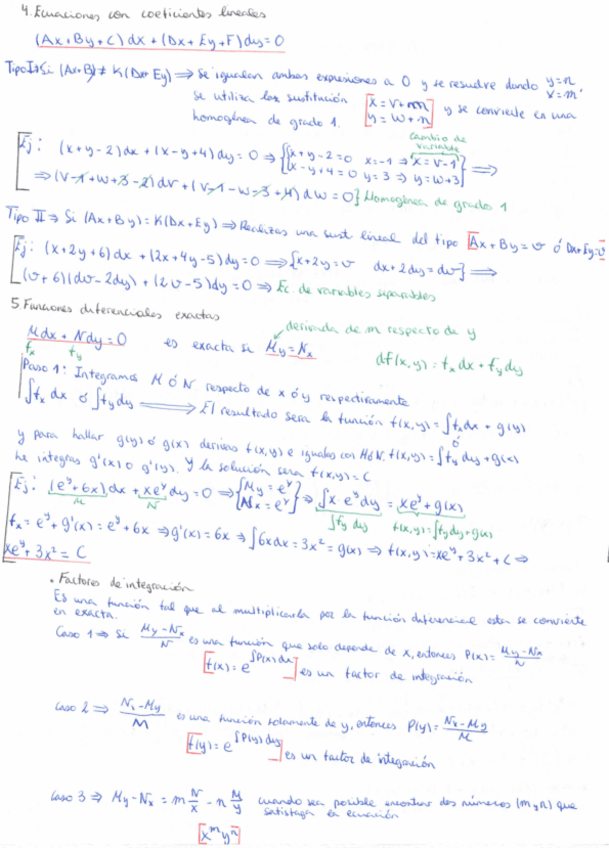 4. Ecuaciones con coeficientes lineales
(Ax+By+C)dx+(Dx+Ey+F)dy=0
Tipo I ⇒ Si (Ax+By) ≠ K(Dx+Ey) ⇒ se igualan ambas expresiones a 0 y se resuelve dando y=n x=m.
se utiliza las sustitución [x=v+m y=w+n] y se convierte en una
homogénea de grado 1.
cambio de variable
Ej: (x+y-2)dx+(x-y+4)dy=0 ⇒ {x+y-2=0 x=-1 ⇒ x=v-1
x-y+4=0 y=3 ⇒ y=w+3} ⇒
⇒ (v-1+w+3-2)dv+(v-1-w-3+4)dw=0} Homogénea de grado 1
Tipo II ⇒ Si (Ax+By)=K(Dx+Ey) ⇒ Realizas una sust lineal del tipo [Ax+By=v ó Dx+Ey=v]
Ej: (x+2y+6)dx+(2x+4y-5)dy=0 ⇒ {x+2y=v dx+2dy=dv} ⇒
(v+6)(dv-2dy)+(2v-5)dy=0 ⇒ Ec. de variables separables
5. Funciones diferenciales exactas
derivada de m respecto de y
Mdx+Ndy=0 es exacta si My=Nx
fx fy df(x,y)=fx dx+fy dy
Paso 1: Integramos M ó N respecto de x ó y respectivamente
∫fx dx ó ∫fy dy ⇒ El resultado sera la función f(x,y)=∫fx dx+g(y)
ó
y para hallar g(y) ó g(x) derivas f(x,y) e igualas con M ó N. f(x,y)=∫fy dy+g(x)
he integras g'(x) o g'(y). Y la solución sera f(x,y)=C
Ej: (e^y+6x)dx+xe^y dy=0 ⇒ {My=e^y Nx=e^y} ⇒ ∫x e^y dy = xe^y+g(x)
M N ∫fy dy f(x,y)=∫fy dy+g(x)
fx=e^y+g'(x)=e^y+6x ⇒ g'(x)=6x ⇒ ∫6xdx=3x²=g(x) ⇒ f(x,y)=xe^y+3x²+C ⇒
xe^y+3x²=C
• Factores de integración
Es una función tal que al multiplicarla por la función diferencial esta se convierte
en exacta.
Caso 1 ⇒ Si (My-Nx)/N es una función que solo depende de x, entonces P(x)=(My-Nx)/N
[f(x)=e^∫P(x)dx] es un factor de integración
Caso 2 ⇒ (Nx-My)/M es una función solamente de y, entonces P(y)=(Nx-My)/M
[f(y)=e^∫P(y)dy] es un factor de integración
Caso 3 ⇒ My-Nx=m N/x - n M/y cuando sea posible encontrar dos números (m y n) que
satisfaga la ecuación
[x^m y^n]